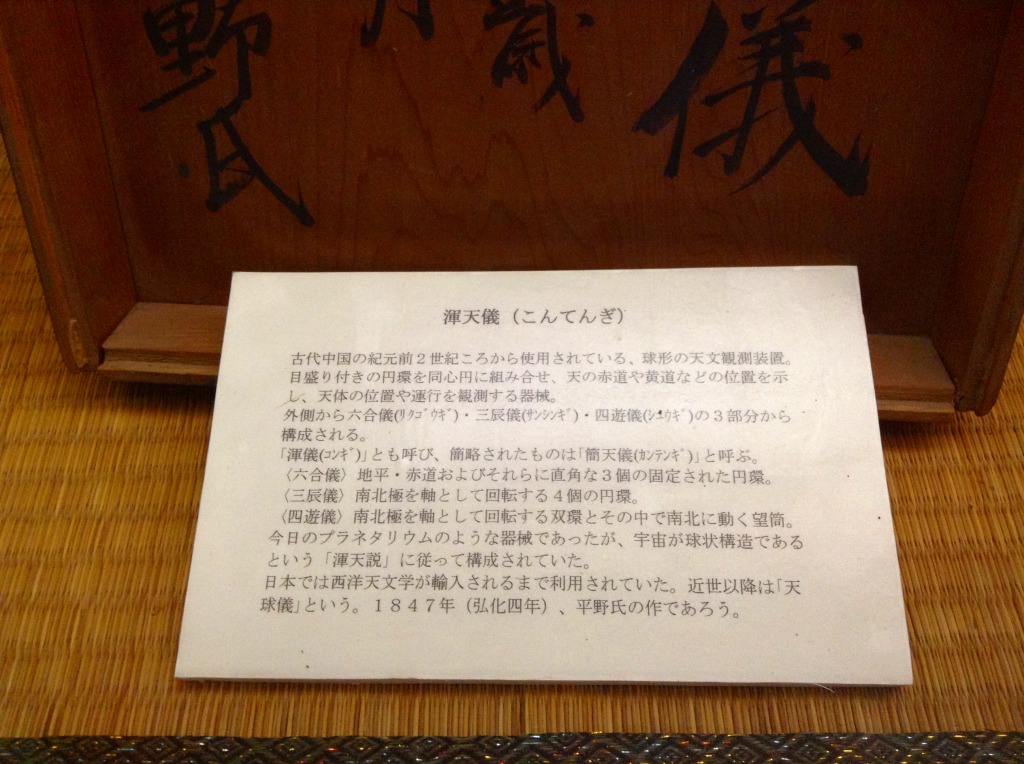 儀
蔵
月
野氏
渾天儀（こんてんぎ）
古代中国の紀元前２世紀ころから使用されている、球形の天文観測装置。
目盛り付きの円環を同心円に組み合せ、天の赤道や黄道などの位置を示
し、天体の位置や運行を観測する器械。
外側から六合儀(ﾘｸｺﾞｳｷﾞ)・三辰儀(ｻﾝｼﾝｷﾞ)・四遊儀(ｼﾕｳｷﾞ)の３部分から
構成される。
「渾儀(ｺﾝｷﾞ)」とも呼び、簡略されたものは「簡天儀(ｶﾝﾃﾝｷﾞ)」と呼ぶ。
〈六合儀〉地平・赤道およびそれらに直角な３個の固定された円環。
〈三辰儀〉南北極を軸として回転する４個の円環。
〈四遊儀〉南北極を軸として回転する双環とその中で南北に動く望筒。
今日のプラネタリウムのような器械であったが、宇宙が球状構造である
という「渾天説」に従って構成されていた。
日本では西洋天文学が輸入されるまで利用されていた。近世以降は「天
球儀」という。１８４７年（弘化四年）、平野氏の作であろう。